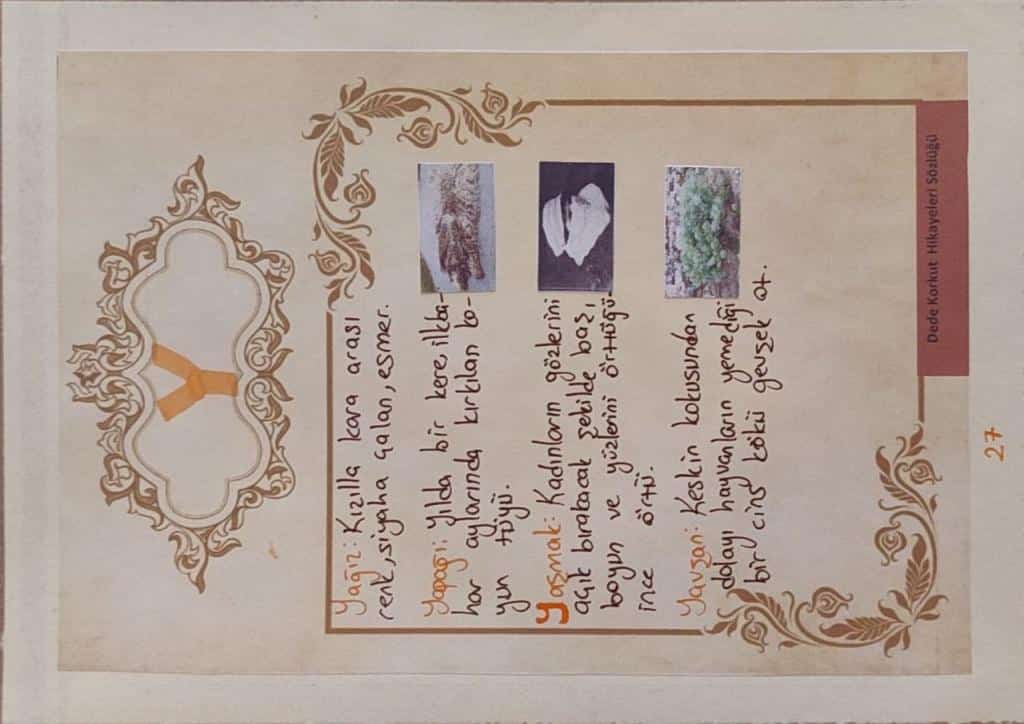 Y
Yağız: Kızılla kara arası
renk, siyaha çalan, esmer.
Yapağı: Yılda bir kere ilkba-
har aylarında kırkılan ko-
yun tüyü.
Yaşmak: Kadınların gözlerini
açık bıratacak şekilde başı
boyun ve yüzlerini örttüğü
ince örtü.
Yavşan: Keskin kokusundan
dolayı hayvanların yemediği
bir cins kökü gevşek ot.
Dede Korkut Hikayeleri Sözlüğü
27